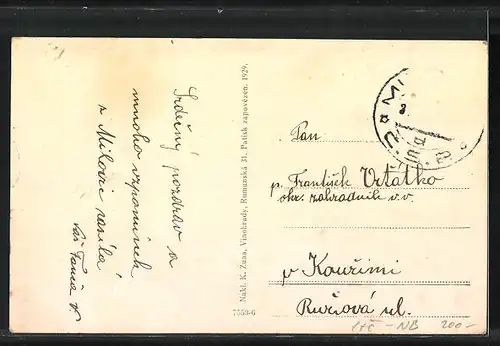 Srdečný pozdrav a
mnoho vzpomínek
z Milovic zasílá
Váš Tonda V.
Nakl. K. Zuna, Vinohrady, Rumunská 31. Patisk zapovězen. 1929.
7553-6
Pan
p. František Vrťátko
okr. zahradník v.v.
v Kouřimi
Růžová ul.
NB 200-